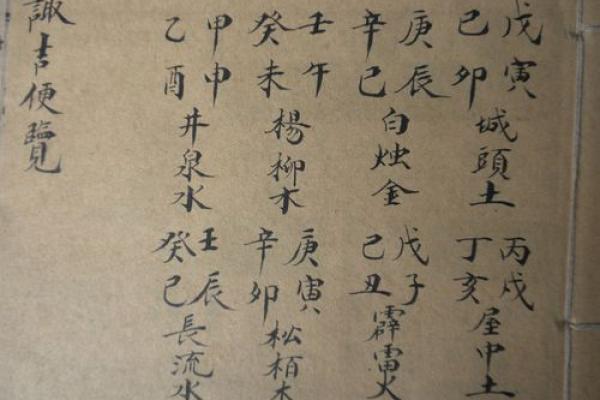 戊寅
己卯
城頭土
丙戌
丁亥
屋中土
庚辰
辛巳
白烛金
戊子
己丑
霹雷火
壬午
癸未
楊柳木
庚寅
辛卯
松栢木
甲申
乙酉
井泉水
壬辰
癸巳
長流水
諏吉便覽